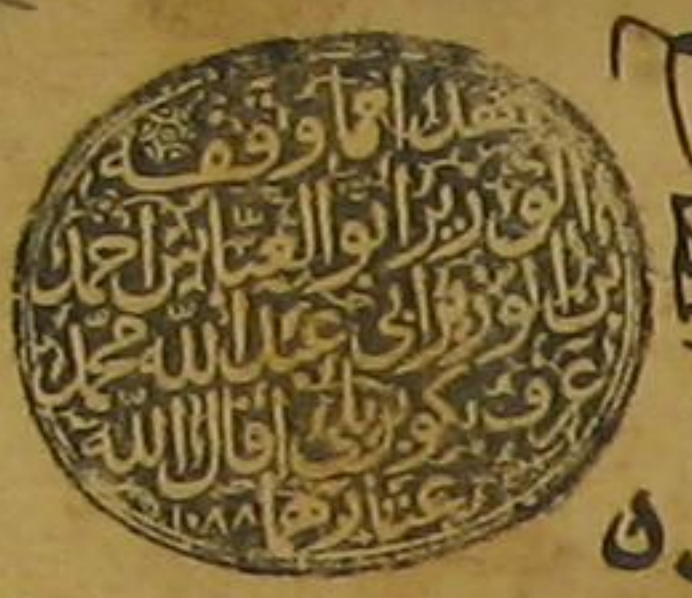 هذا مما وقفه
الوزير ابو العباس احمد
ابن الوزير ابي عبد الله محمد
عرف بكوبريلي اقال الله
عثارهما ١٠٨٨